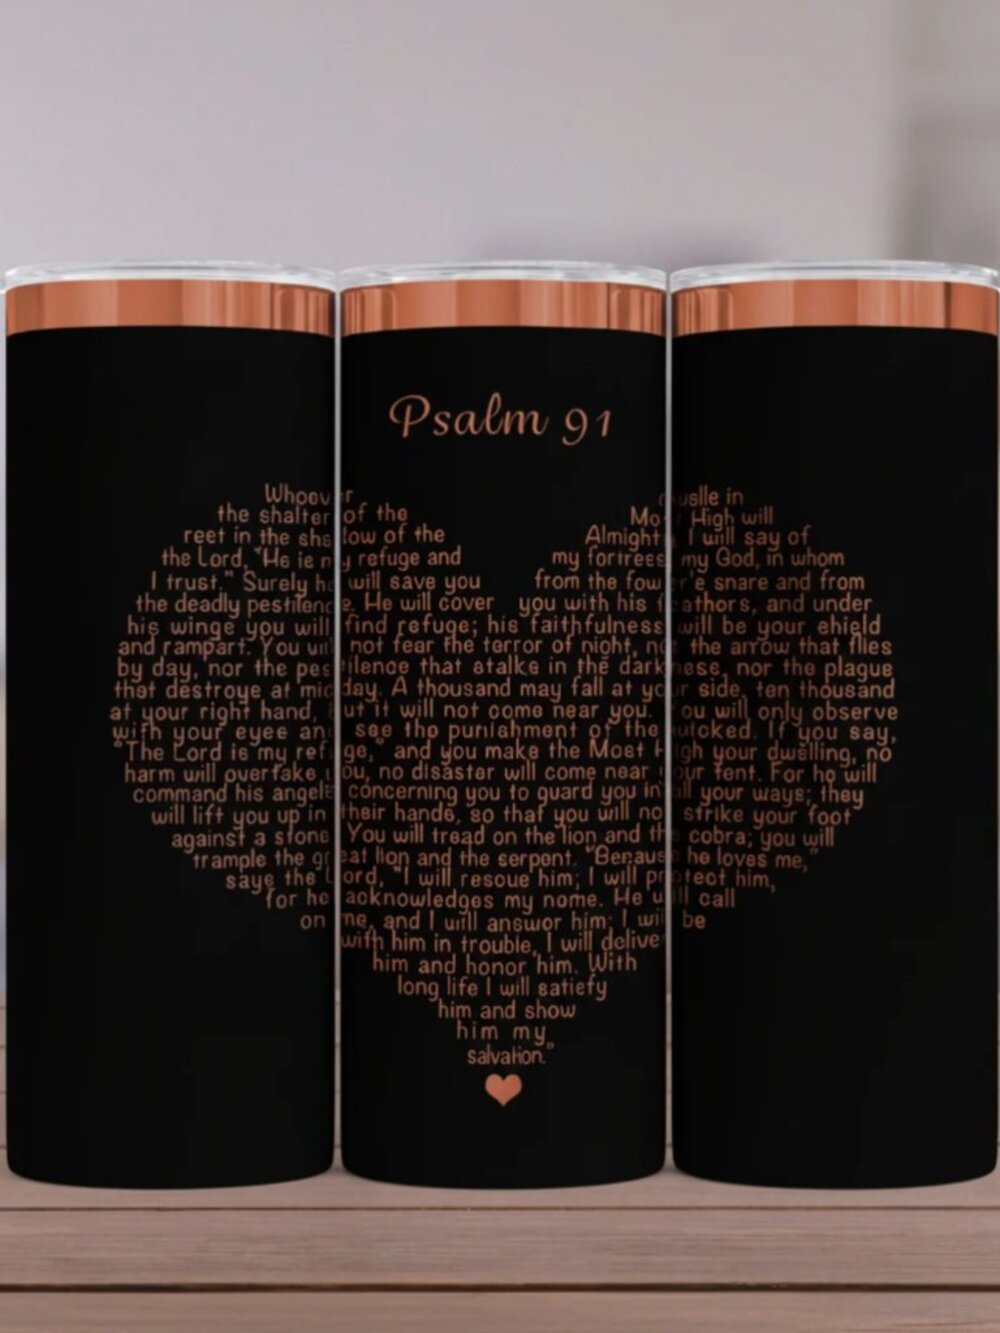 Psalm 91
Whoever duslle in
the shalter of the Most High will
reet in the shadow of the Almighty I will say of
the Lord, "He is my refuge and my fortress my God, in whom
I trust." Surely he will save you from the fowler'e snare and from
the deadly pestilence. He will cover you with his feathors, and under
his winge you will find refuge; his faithfulness will be your ehield
and rampart. You will not fear the terror of night, nor the arrow that flies
by day, nor the pestilence that stalke in the darkness, nor the plague
that destroye at midday. A thousand may fall at your side, ten thousand
at your right hand, but it will not come near you. You will only observe
with your eyee and see tho punishment of the If you say,
"The Lord is my refuge," and you make the Most High your dwelling, no
harm will overtake you, no disaster will come near your tent. For ho will
command his angele concerning you to guard you in all your ways; they
will lift you up in their hande, so that you will not strike your foot
against a stone You will tread on the lion and the cobra; you will
trample the great lion and the serpont. "Because he loves me,"
saye the Lord, "I will rescue him; I will protect him,
for he acknowledges my name. He will call
on me, and I will answor him; I will be
with him in trouble, I will deliver
him and honor him. With
long life I will satiefy
him and show
him my
salvation."